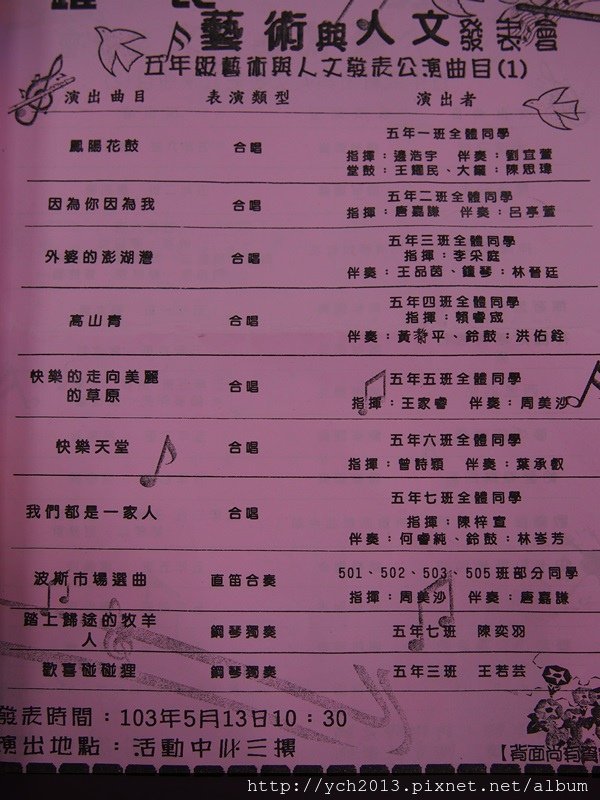 藝術與人文發表會
五年級藝術與人文發表公演曲目(1)
演出曲目 表演類型 演出者
鳳陽花鼓 合唱 五年一班全體同學
指揮：邊浩宇 伴奏：劉宜萱
堂鼓：王鐲民、大鑼：陳思瑋
因為你因為我 合唱 五年二班全體同學
指揮：唐嘉謙 伴奏：呂亭萱
外婆的澎湖灣 合唱 五年三班全體同學
指揮：李采庭
伴奏：王品茵、鐘琴：林晉廷
高山青 合唱 五年四班全體同學
指揮：賴睿宬
伴奏：黃 平、鈴鼓：洪佑銓
快樂的走向美麗
的草原 合唱 五年五班全體同學
指揮：王家睿 伴奏：周美沙
快樂天堂 合唱 五年六班全體同學
指揮：曾詩穎 伴奏：葉承叡
我們都是一家人 合唱 五年七班全體同學
指揮：陳梓宣
伴奏：何睿純、鈴鼓：林岑芳
波斯市場選曲 直笛合奏 501、502、503、505班部分同學
指揮：周美沙 伴奏：唐嘉謙
踏上歸途的牧羊
人 鋼琴獨奏 五年七班 陳奕羽
歡喜碰碰狸 鋼琴獨奏 五年三班 王若芸
發表時間：103年5月13日10：30
演出地點：活動中心三樓
【背面尚有
http://ych2013.pixnet.net/album